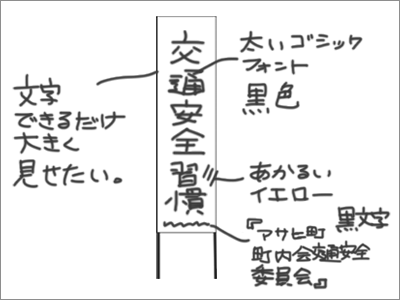 交通安全習慣
文字
できるだけ
大きく
見せたい。
太いゴシック
フォント
黒色
あかるい
イエロー
黒文字
『アサヒ町
町内会交通安全
委員会』